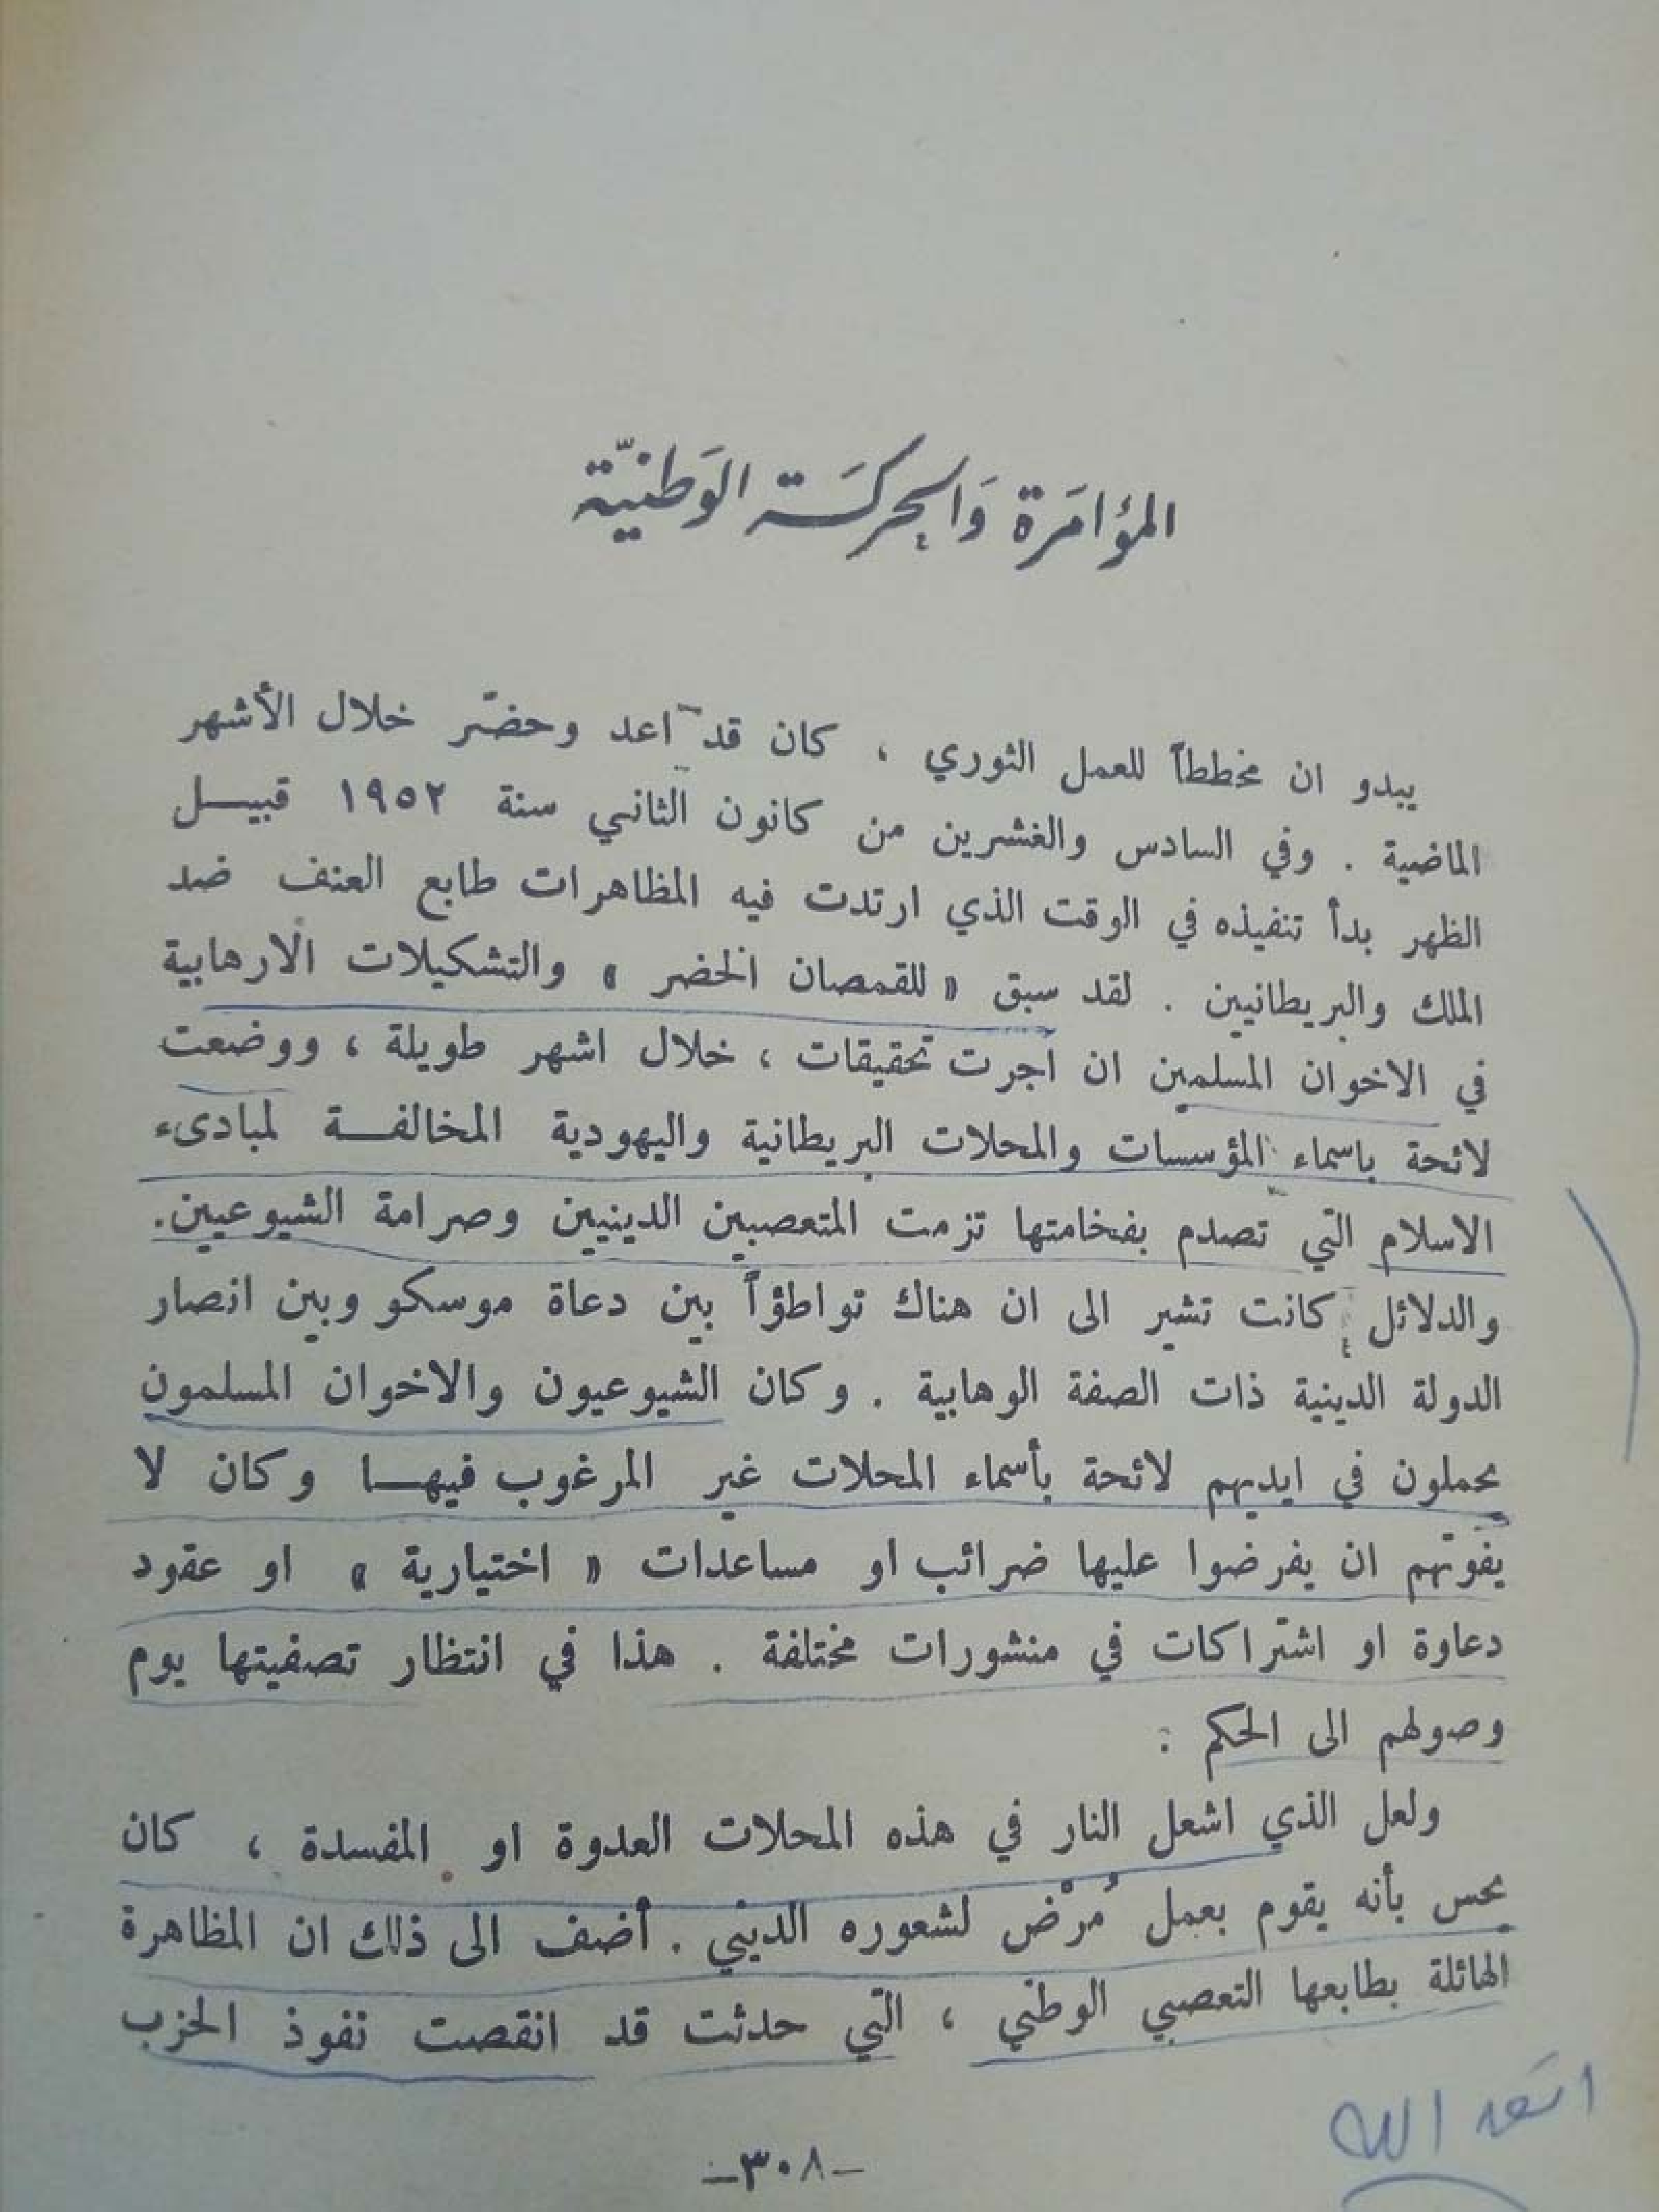 المؤامَرة وَالحركَة الوَطنيّة
يبدو ان مخططاً للعمل الثوري ، كان قد اعد وحضّر خلال الأشهر
الماضية . وفي السادس والعشرين من كانون الثاني سنة ١٩٥٢ قبيل
الظهر بدأ تنفيذه في الوقت الذي ارتدت فيه المظاهرات طابع العنف ضد
الملك والبريطانيين . لقد سبق « للقمصان الخضر » والتشكيلات الارهابية
في الاخوان المسلمين ان أجرت تحقيقات ، خلال اشهر طويلة ، ووضعت
لائحة باسماء المؤسسات والمحلات البريطانية واليهودية المخالفة لمبادىء
الاسلام التي تصدم بفخامتها تزمت المتعصبين الدينيين وصرامة الشيوعيين.
والدلائل كانت تشير الى ان هناك تواطؤاً بين دعاة موسكو وبين انصار
الدولة الدينية ذات الصفة الوهابية . وكان الشيوعيون والاخوان المسلمون
يحملون في ايديهم لائحة بأسماء المحلات غير المرغوب فيها وكان لا
يفوتهم ان يفرضوا عليها ضرائب او مساعدات « اختيارية » او عقود
دعاوة او اشتراكات في منشورات مختلفة . هذا في انتظار تصفيتها يوم
وصولهم الى الحكم :
ولعل الذي اشعل النار في هذه المحلات العدوة او المفسدة ، كان
يحس بأنه يقوم بعمل مُرْض لشعوره الديني . أضف الى ذلك ان المظاهرة
الهائلة بطابعها التعصبي الوطني ، التي حدثت قد انقصت نفوذ الحزب
الله
–٣٠٨–